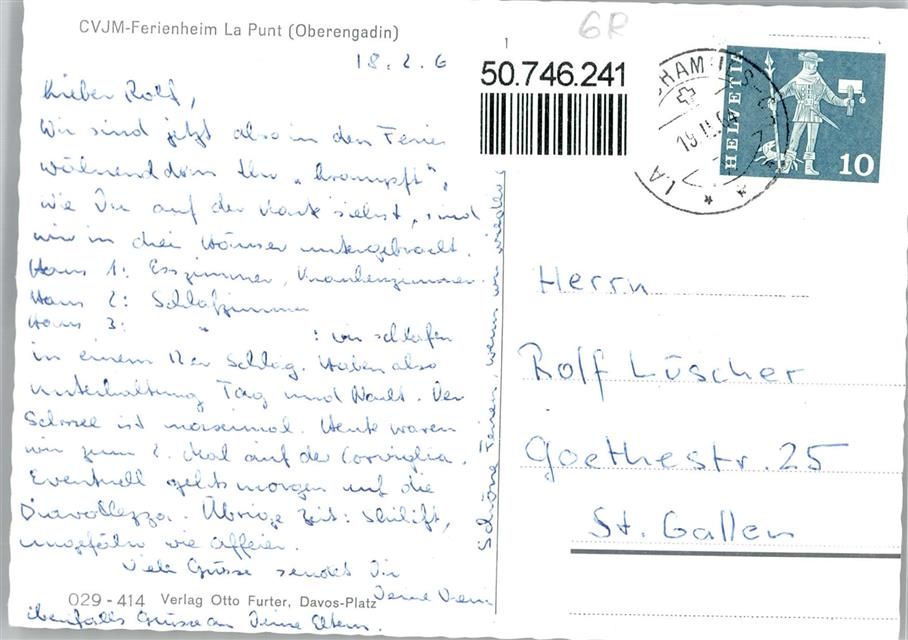 CVJM-Ferienheim La Punt (Oberengadin)
6R
1
18. 2. 6
50.746.241
HELVETIA
10
Lieber Rolf,
Wir sind jetzt also in den Ferien
während dem Ihr „krampft",
wie Du auf der Karte siehst, sind
wir in drei Häuser untergebracht.
Haus 1: Esszimmer, Krankenzimmer
Haus 2: Schlafzimmer
Haus 3: " : wir schlafen
in einem 12er Schlag. Haben also
Unterhaltung Tag und Nacht. Der
Schnee ist maximal. Heute waren
wir zum 2. Mal auf der Corviglia.
Eventuell gehts morgen auf die
Diavolezza. Übrige Zeit: Skilift,
ungefähr wie
Viele Grüsse sendet Dir
Deine
ebenfalls Grüsse an Deine Eltern.
Schöne Ferien, wenn wir wieder
029-414 Verlag Otto Furter, Davos-Platz
Herrn
Rolf Lüscher
Goethestr. 25
St. Gallen